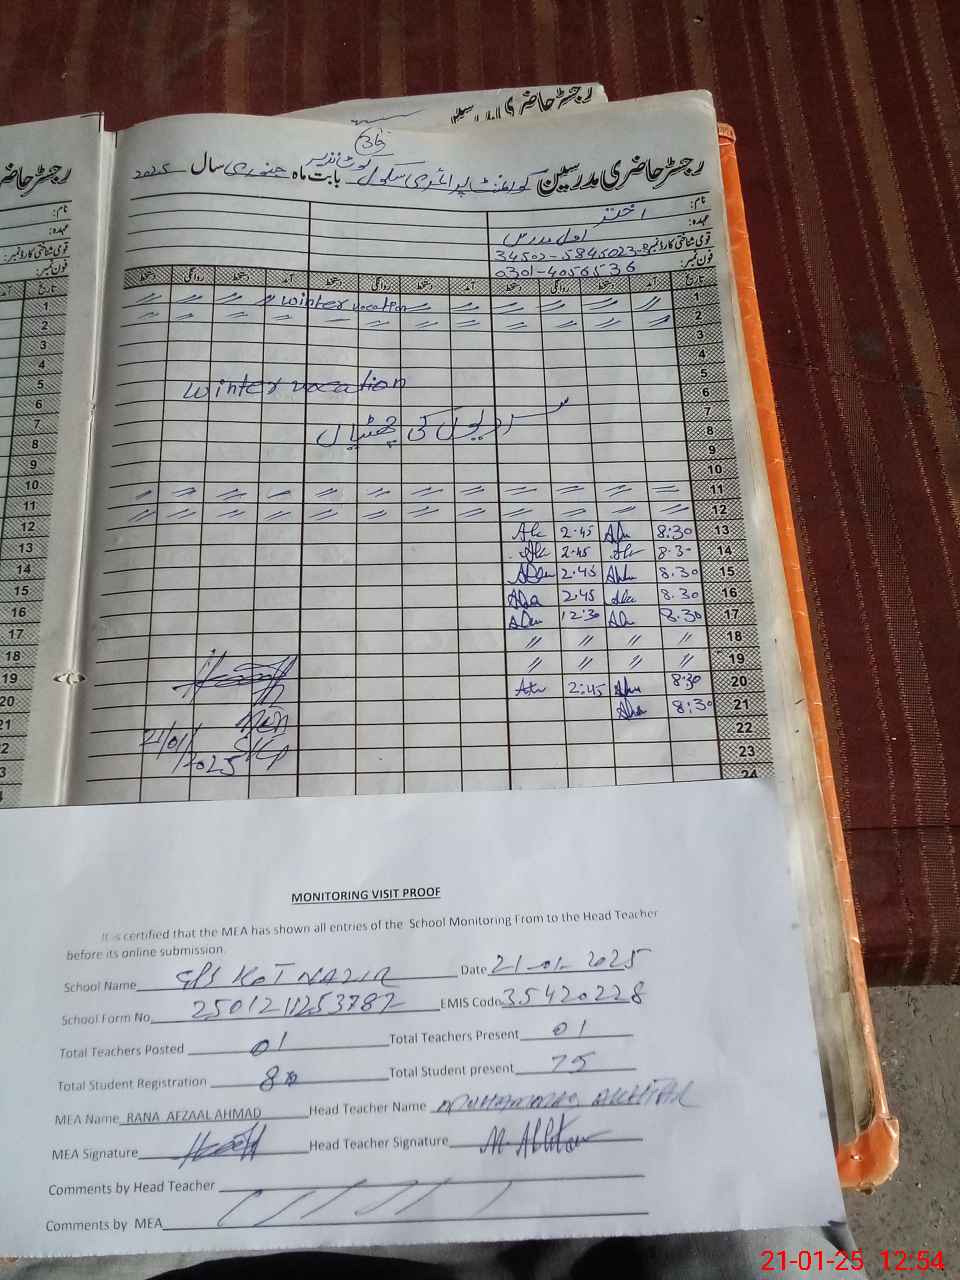 رجسٹر حاضری مدرسین
36
رجسٹر حاضری مدرسین گورنمنٹ پرائمری سکول کوٹ نذیر بابت ماہ جنوری سال 2025
رجسٹر حاضر
نام: اختر
عہدہ: اول مدرس
قومی شناختی کارڈ نمبر: 34502-5845023-8
فون نمبر: 0301-4056536
تاریخ آمد دستخط روانگی دستخط آمد دستخط روانگی دستخط آمد دستخط روانگی دستخط
1 〃 〃 〃 〃 winter vacation 〃 〃 〃 〃
2 〃 〃 〃 〃 〃 〃 〃 〃 〃 〃 〃 〃
3
4
5
6 winter vacation
7
8 سردیوں کی چھٹیاں
9
10
11 〃 〃 〃 〃 〃 〃 〃 〃 〃 〃 〃 〃
12 〃 〃 〃 〃 〃 〃 〃 〃 〃 〃 〃 〃
13 8:30 2.45
14 8.30 2.45
15 8.30 2.45
16 8.30 2.45
17 8.30 12:30
18 〃 〃 〃 〃
19 〃 〃 〃 〃
20 8:30 2:45
21 8:30
22
23
24
21/01/2025
MONITORING VISIT PROOF
It is certified that the MEA has shown all entries of the School Monitoring From to the Head Teacher
before its online submission.
School Name GPS KOT NAZIR Date 21-01-2025
School Form No 2501211253782 EMIS Code 35420228
Total Teachers Posted 01 Total Teachers Present 01
Total Student Registration 80 Total Student present 75
MEA Name RANA AFZAAL AHMAD Head Teacher Name MUHAMMAD AKHTAR
MEA Signature Head Teacher Signature M. Akhtar
Comments by Head Teacher
Comments by MEA
21-01-25 12:54